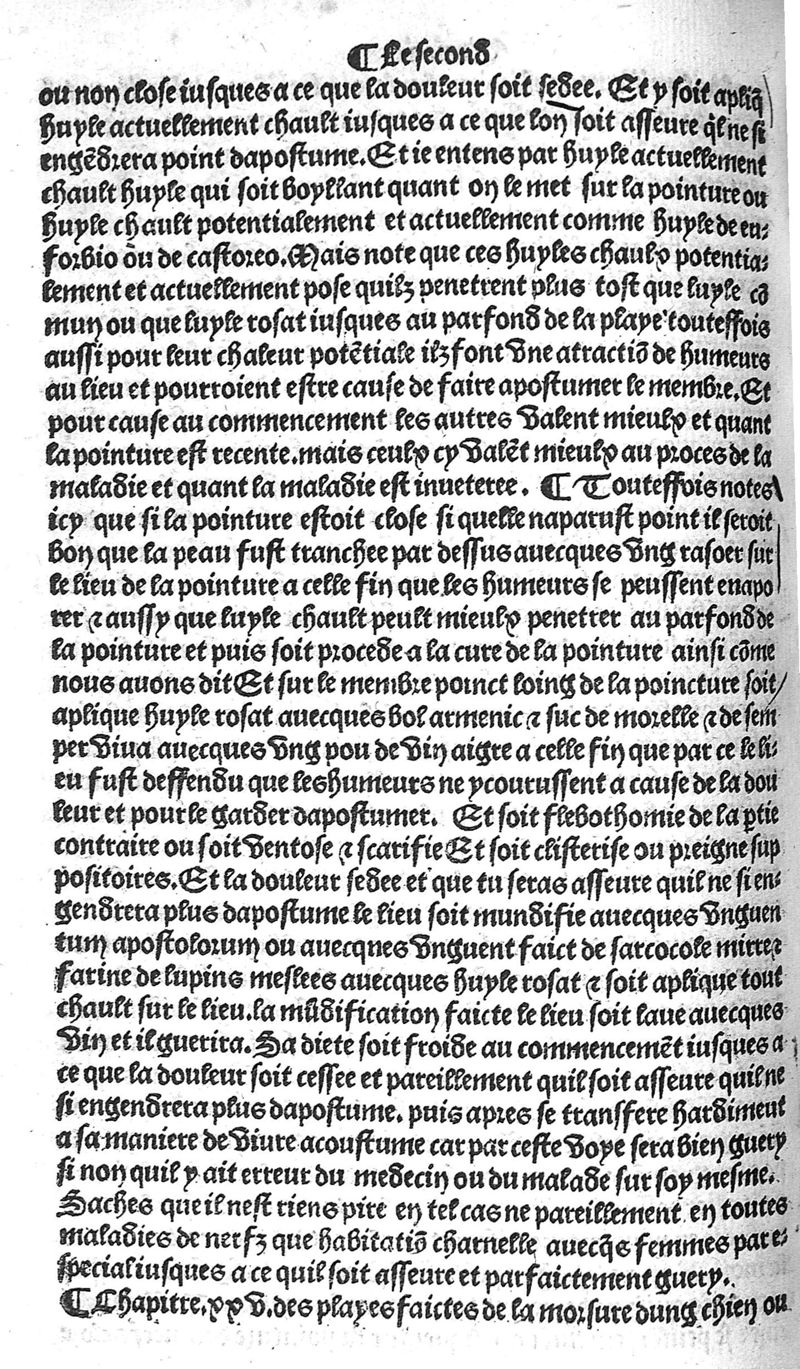 ¶ Le second
ou non close iusques a ce que la douleur soit sedee. Et y soit apliq̃
huyle actuellement chault iusques a ce que lon soit asseure q̃l ne si
engẽdrera point dapostume. Et ie entens par huyle actuellement
chault huyle qui soit boyllant quant on le met sur la pointure ou
huyle chault potentialement et actuellement comme huyle de eu-
forbio ou de castoreo. Mais note que ces huyles chaulx potentia-
lement et actuellement pose quilz penetrent plus tost que luyle cõ
mun ou que luyle rosat iusques au parfond de la playe touteffois
aussi pour leur chaleur potẽtiale ilz font vne atractiõ de humeurs
au lieu et pourroient estre cause de faire apostumer le membre. Et
pour cause au commencement les autres valent mieulx et quant
la pointure est recente. mais ceulx cy valẽt mieulx au proces de la
maladie et quant la maladie est inueteree. ¶ Touteffois notes
icy que si la pointure estoit close si quelle naparust point il seroit
bon que la peau fust tranchee par dessus auecques vng rasoer sur
le lieu de la pointure a celle fin que les humeurs se peussent euapo
rer ⁊ aussy que luyle chault peult mieulx penetrer au parfond de
la pointure et puis soit procede a la cure de la pointure ainsi cõme
nous auons dit Et sur le membre poinct loing de la poincture soit/
aplique huyle rosat auecques bol armenic ⁊ suc de morelle ⁊ de sem
per viua auecques vng pou de vin aigre a celle fin que par ce le li-
eu fust deffendu que les humeurs ne ycourussent a cause de la dou
leur et pour le garder dapostumer. Et soit flebothomie de la ꝑtie
contraire ou soit ventose ⁊ scarifie Et soit clisterise ou preigne sup
positoires. Et la douleur sedee et que tu seras asseure quil ne si en-
gendrera plus dapostume le lieu soit mundifie auecques vnguen
tum apostolorum ou auecqnes vnguent faict de sarcocole mirre ⁊
farine de lupins meslees auecques huyle rosat ⁊ soit aplique tout
chault sur le lieu. la mũdification faicte le lieu soit laue auecques
vin et il guerira. Sa diete soit froide au commencemẽt iusques a
ce que la douleur soit cessee et pareillement quil soit asseure quil ne
si engendrera plus dapostume. puis apres se transfere hardiment
a sa maniere de viure acoustume car par ceste voye sera bien guery
si non quil y ait erreur du medecin ou du malade sur soy mesme.
Saches que il nest riens pire en tel cas ne pareillement en toutes
maladies de nerfz que habitatiõ charnelle auecq̃s femmes par e-
special iusques a ce quil soit asseure et parfaictement guery.
¶ Chapitre. xxv. des playes faictes de la morsure dung chien ou